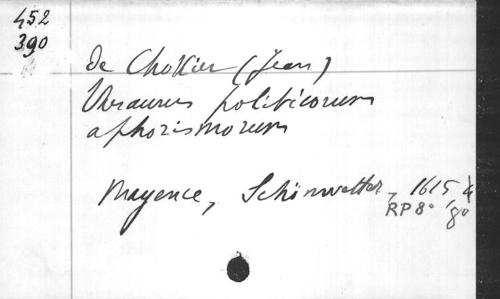 452
390
de Chokier (Jean)
Thesaurus politicorum
aphorismorum
Mayence, Schönwetter, 1615
RP 8° 80